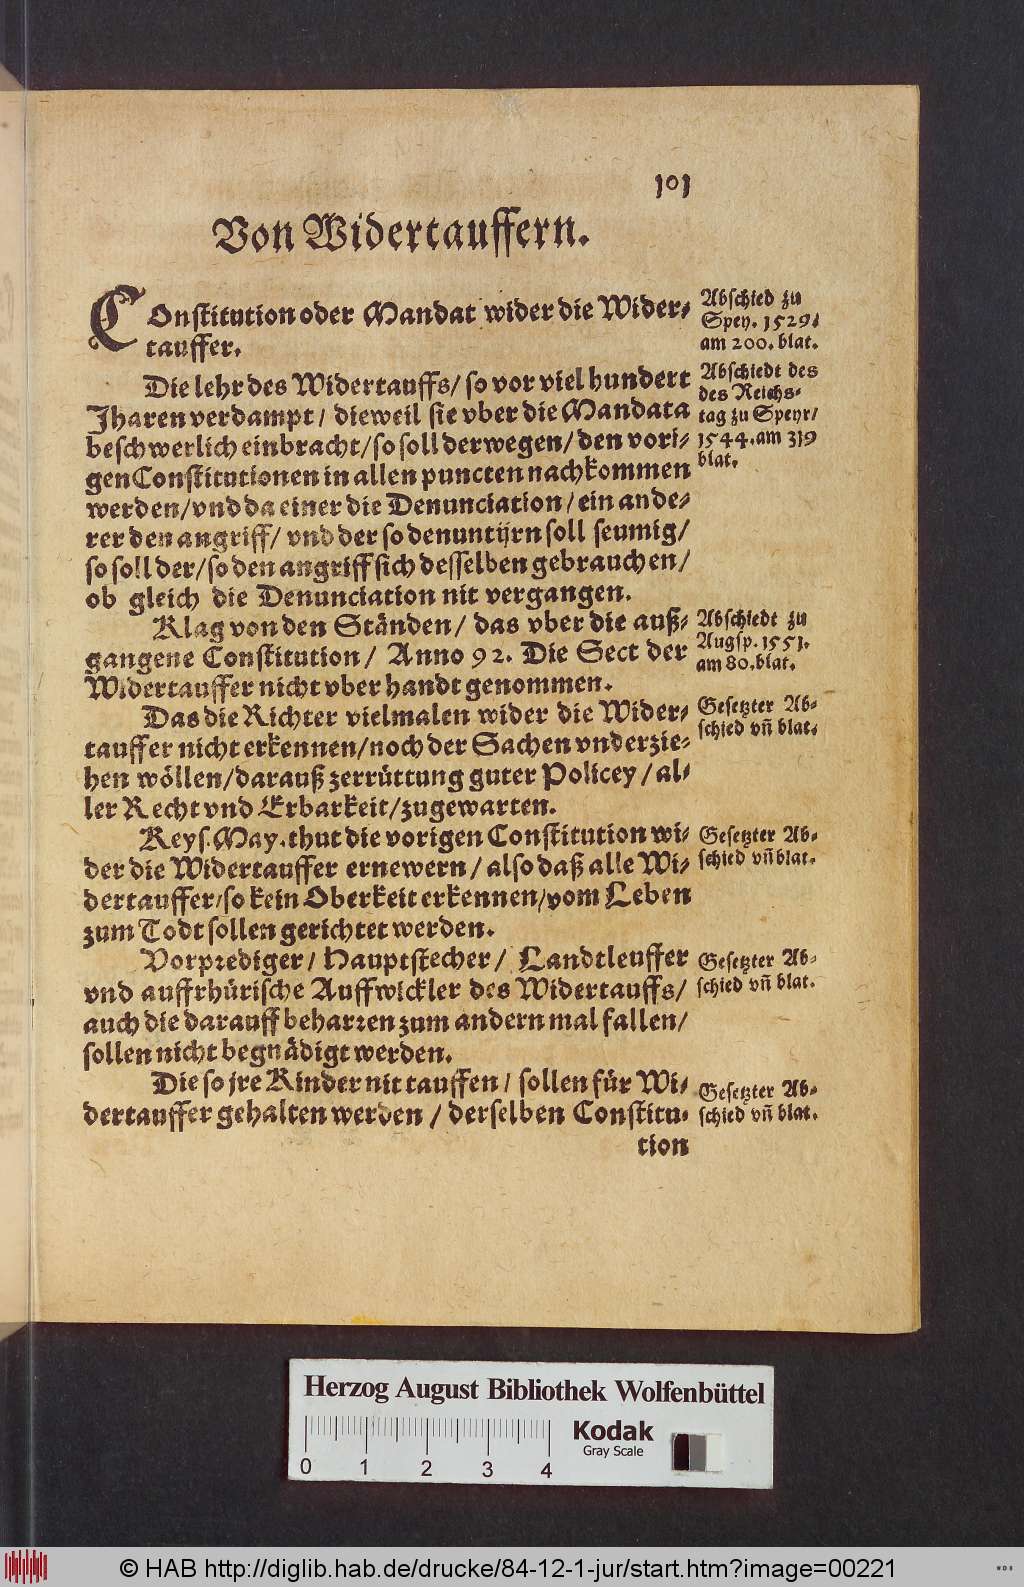 101
Von Widertauffern.
COnstitution oder Mandat wider die Wider-
tauffer.
Abschied zu
Spey. 1529.
am 200. blat.
Die lehr des Widertauffs/ so vor viel hundert
Jharen verdampt/ dieweil sie vber die Mandata
beschwerlich einbracht/ so soll derwegen/ den vori-
gen Constitutionen in allen puncten nachkommen
werden/ vnd da einer die Denunciation/ ein ande-
rer den angriff/ vnd der so denuntijrn soll seumig/
so soll der/ so den angriff sich desselben gebrauchen/
ob gleich die Denunciation nit vergangen.
Abschiedt des
des Reichs-
tag zu Speyr/
1544. am 319
blat.
Klag von den Ständen/ das vber die auß-
gangene Constitution/ Anno 92. Die Sect der
Widertauffer nicht vber handt genommen.
Abschiedt zu
Augsp. 1551.
am 80. blat.
Das die Richter vielmalen wider die Wider-
tauffer nicht erkennen/ noch der Sachen vnderzie-
hen wöllen/ darauß zerrüttung guter Policey/ al-
ler Recht vnd Erbarkeit/ zugewarten.
Gesetzter Ab-
schied vñ blat.
Keys. May. thut die vorigen Constitution wi-
der die Widertauffer ernewern/ also daß alle Wi-
dertauffer/ so kein Oberkeit erkennen/ vom Leben
zum Todt sollen gerichtet werden.
Gesetzter Ab-
schied vñ blat.
Vorprediger/ Hauptstecher/ Landtleuffer
vnd auffrhürische Auffwickler des Widertauffs/
auch die darauff beharren zum andern mal fallen/
sollen nicht begnädigt werden.
Gesetzter Ab-
schied vñ blat.
Die so jre Kinder nit tauffen/ sollen für Wi-
dertauffer gehalten werden/ derselben Constitu-
tion
Gesetzter Ab-
schied vñ blat.
Herzog August Bibliothek Wolfenbüttel
0 1 2 3 4
Kodak
Gray Scale
© HAB http://diglib.hab.de/drucke/84-12-1-jur/start.htm?image=00221